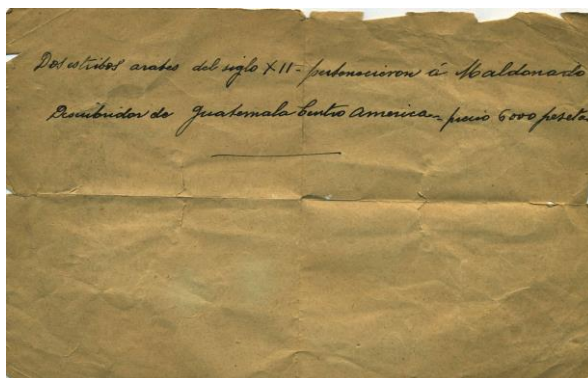 Dos estribos arabes del siglo XII - pertenecieron á Maldonado
Descubridor de Guatemala Centro America - precio 6000 pesetas